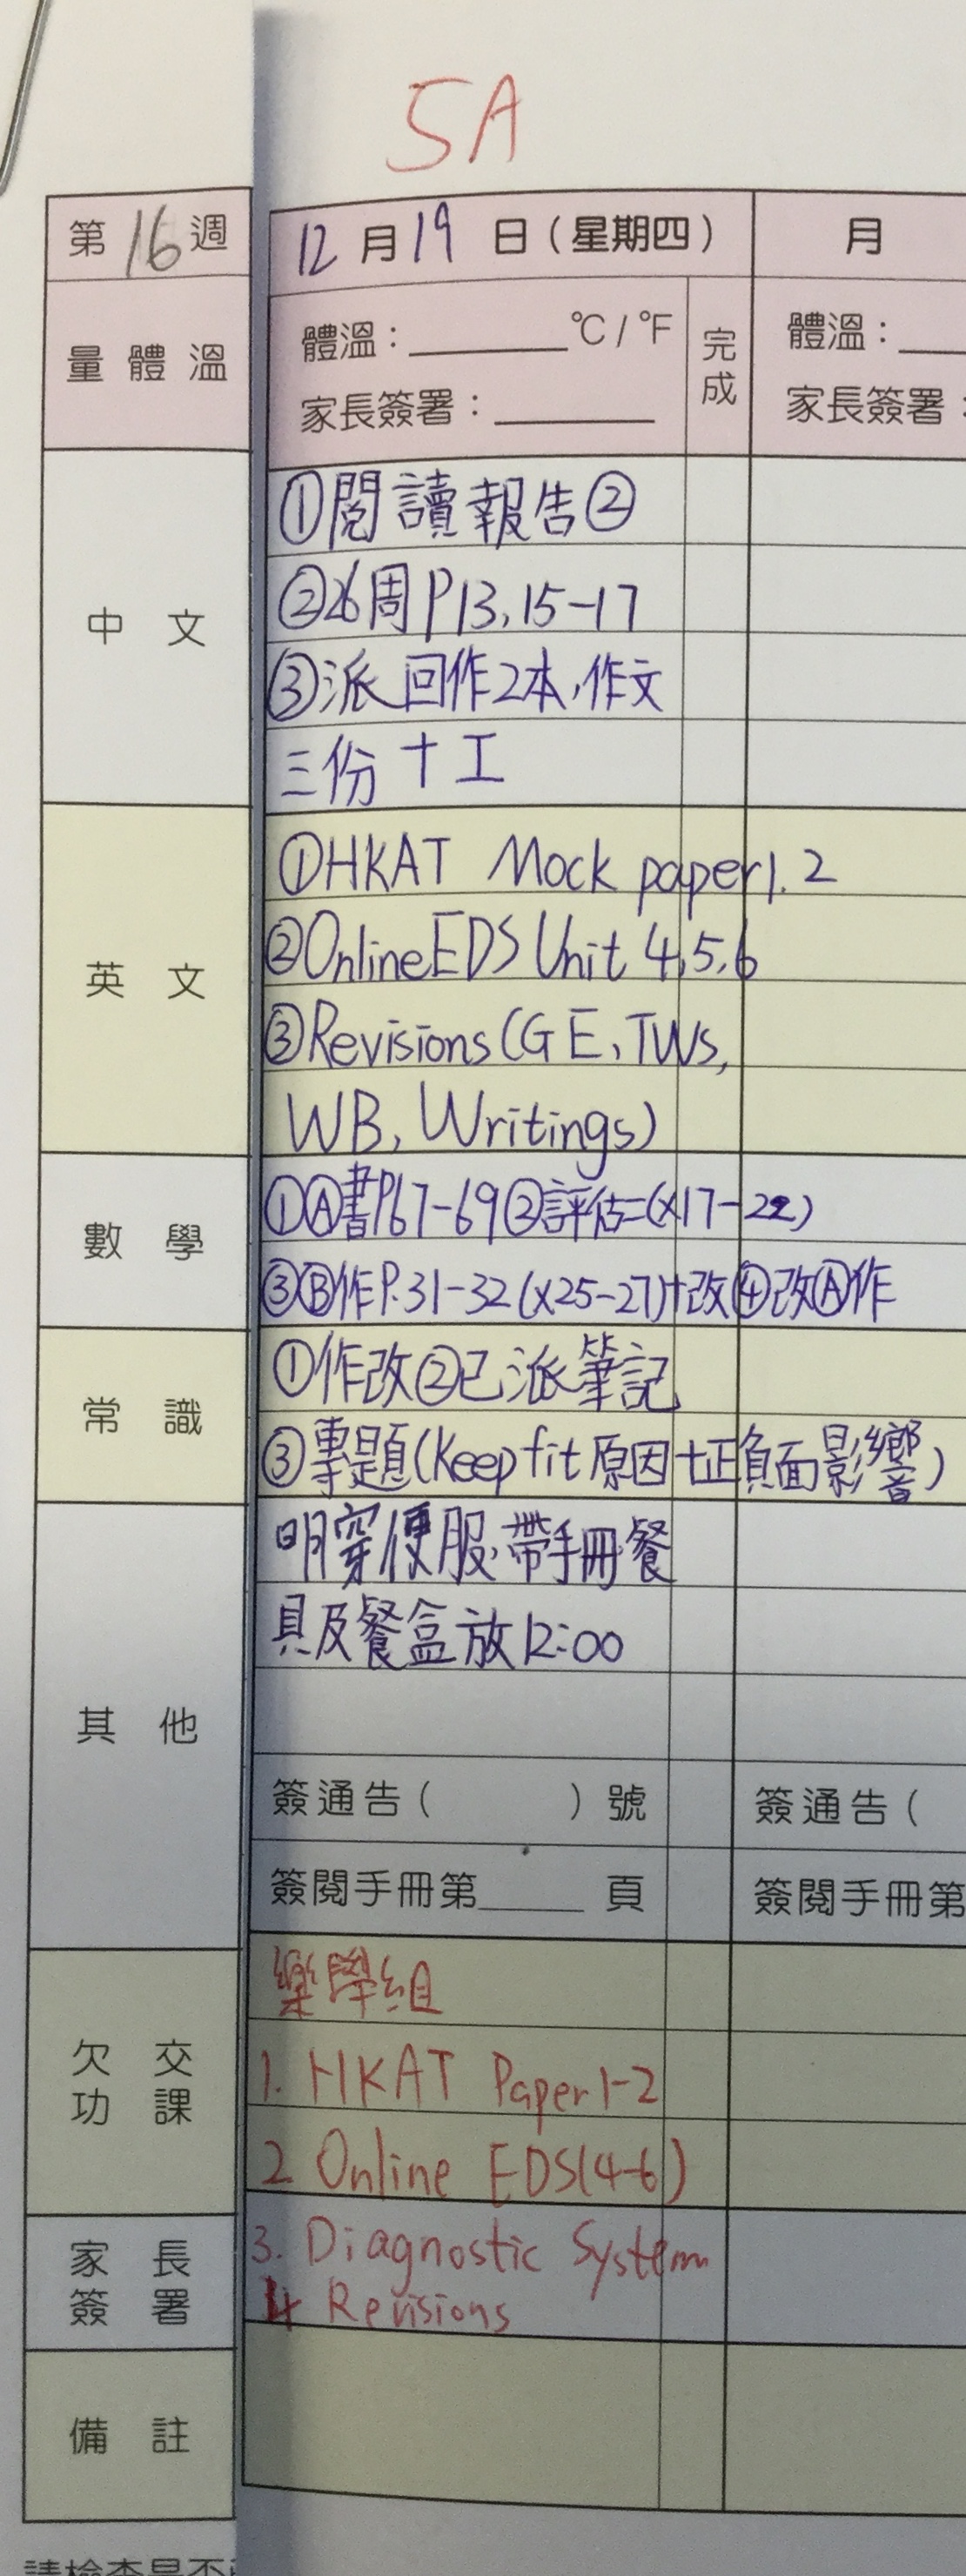 5A
第16週
12月19日(星期四)
月
量體溫
體溫:______°C/°F
完成
體溫:
家長簽署:______
家長簽署:
中文
①閱讀報告②
②26周P13,15-17
③派回作2本,作文
三份十工
英文
①HKAT Mock paper1.2
②OnlineEDS Unit 4,5,6
③Revisions(GE,TWs,
WB,Writings)
數學
①Ⓐ書P67-69②評估二(x17-22)
③Ⓑ作P.31-32(x25-27)+改④改Ⓐ作
常識
①作改②已派筆記
③專題(Keepfit原因+正負面影響)
其他
明穿便服,帶手冊,餐
具及餐盒放12:00
簽通告( )號
簽通告(
簽閱手冊第______頁
簽閱手冊第
欠交功課
樂學組
1. HKAT Paper1-2
2 Online EDS(4-6)
家長簽署
3. Diagnostic System
4 Revisions
備註